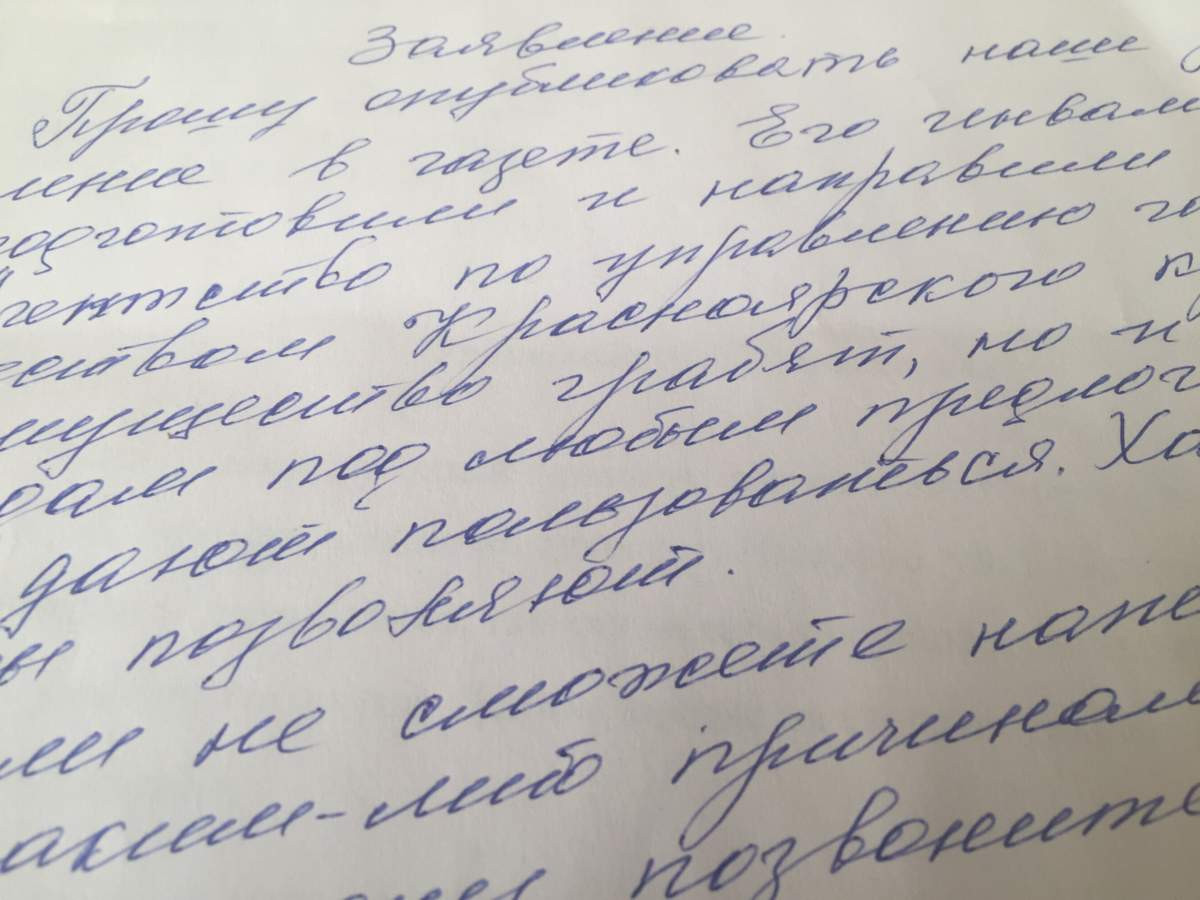 Заявление.
Прошу опубликовать наши
ление в газете. Его инвали
одготовили и направили
гентство по управлению го
еством Красноярского к
мущество грабят, но и
дам под любым предлог
дают пользоваться. Ха
ы позволяют.
ли не сможете напе
аким-либо причинам
позвоните